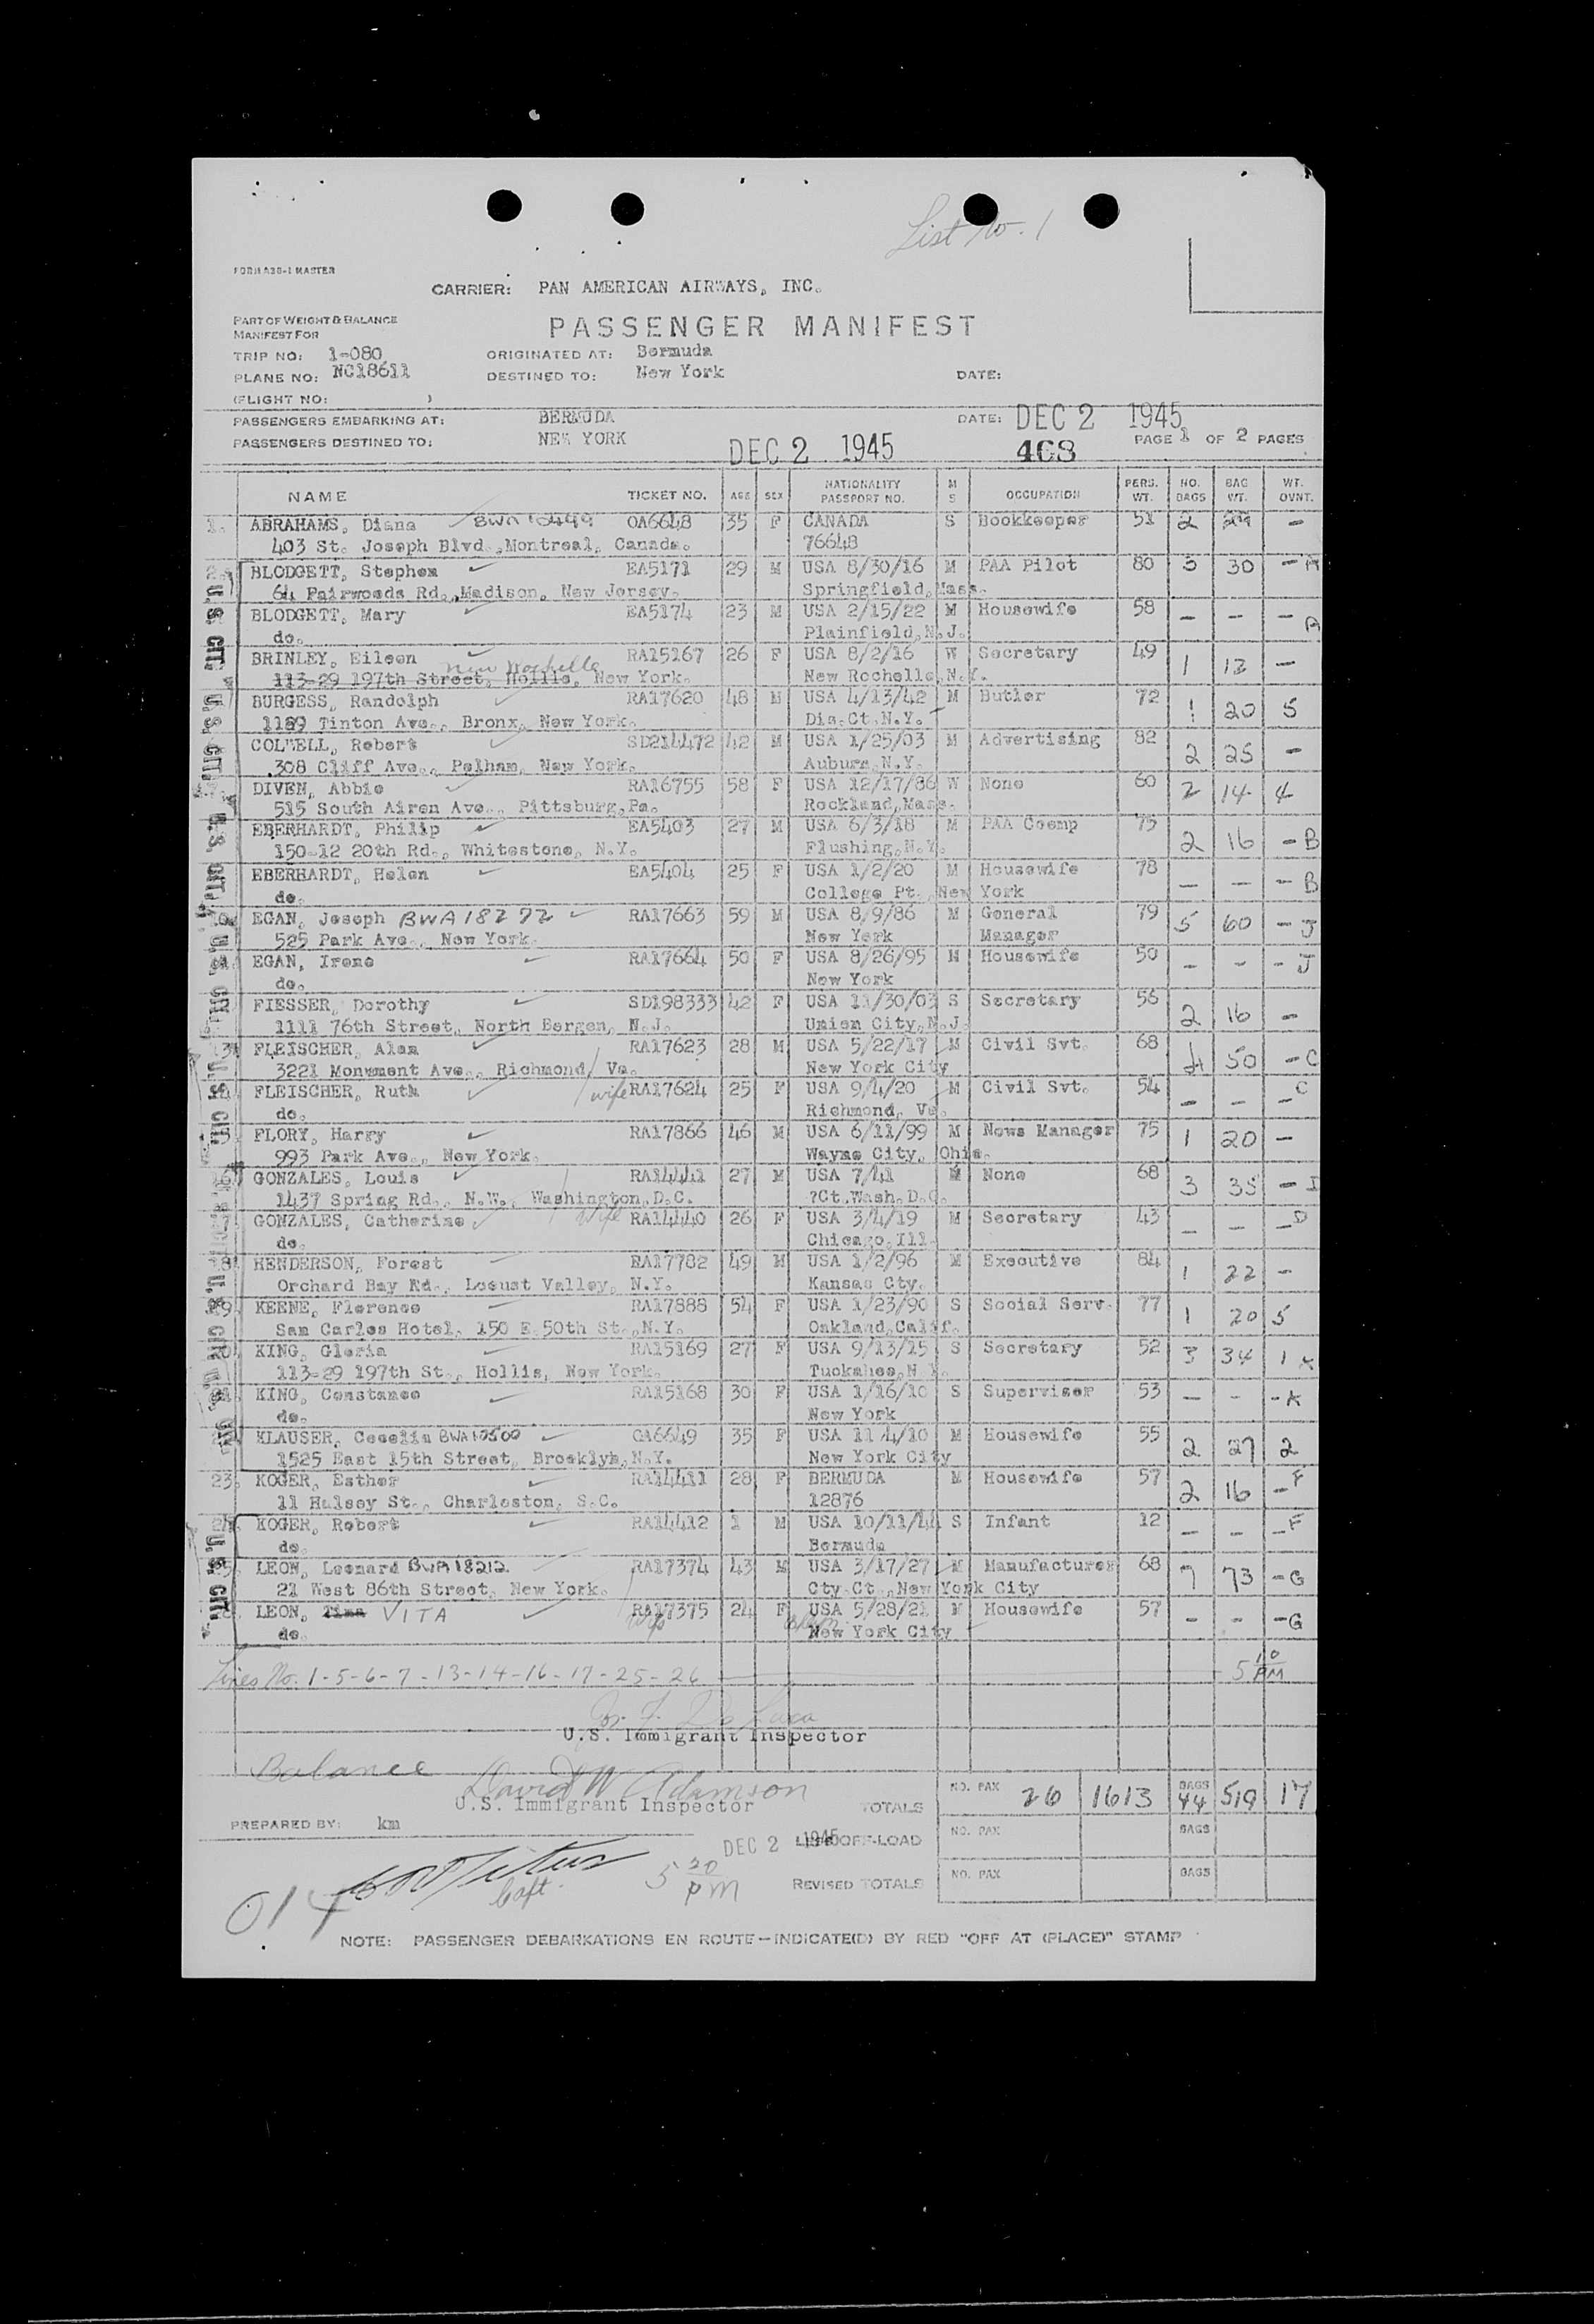 List No. 1
FORM A30-1 MASTER
CARRIER: PAN AMERICAN AIRWAYS, INC.
PART OF WEIGHT & BALANCE
MANIFEST FOR
PASSENGER MANIFEST
TRIP NO: 1-080 ORIGINATED AT: Bermuda
PLANE NO: NC18611 DESTINED TO: New York DATE:
(FLIGHT NO: )
PASSENGERS EMBARKING AT: BERMUDA DATE: DEC 2 1945
PASSENGERS DESTINED TO: NEW YORK DEC 2 1945 408 PAGE 1 OF 2 PAGES
NAME TICKET NO. AGE SEX NATIONALITY PASSPORT NO. M S OCCUPATION PERS. WT. NO. BAGS BAG WT. WT. OVNT.
1. ABRAHAMS, Diana BWA 10499 OA6648 35 F CANADA S Bookkeeper 51 2 -
403 St. Joseph Blvd.,Montreal, Canada. 76648
BLODGETT, Stephen EA5171 29 M USA 8/30/16 M PAA Pilot 80 3 30 - A
64 Fairwoods Rd.,Madison, New Jersey. Springfield,Mass.
BLODGETT, Mary EA5174 23 M USA 2/15/22 M Housewife 58 - - - A
do. Plainfield,N.J.
BRINLEY, Eileen RA15167 26 F USA 8/2/16 W Secretary 49 1 12 -
New Rochelle
113-29 197th Street, Hollis, New York. New Rochelle,N.Y.
BURGESS, Randolph RA17620 48 M USA 4/13/42 M Butler 72 1 20 5
1189 Tinton Ave., Bronx, New York. Dis.Ct.N.Y.
COLWELL, Robert SD214472 42 M USA 1/25/03 M Advertising 82 2 25 -
308 Cliff Ave., Pelham, New York. Auburn,N.Y.
DIVEN, Abbie RA16755 58 F USA 12/17/86 W None 60 2 14 4
515 South Airen Ave., Pittsburg,Pa. Rockland,Mass.
EBERHARDT, Philip EA5403 27 M USA 6/3/18 M PAA Coemp 75 2 16 - B
150-12 20th Rd., Whitestone, N.Y. Flushing,N.Y.
EBERHARDT, Helen EA5404 25 F USA 1/2/20 M Housewife 78 - - - B
do. College Pt.,New York
EGAN, Joseph BWA 18272 RA17663 59 M USA 8/9/86 M General 79 5 60 - J
525 Park Ave., New York. New York Manager
EGAN, Irene RA17664 50 F USA 8/26/95 M Housewife 50 - - - J
do. New York
FIESSER, Dorothy SD198333 42 F USA 11/30/03 S Secretary 56 2 16 -
1111 76th Street, North Bergen, N.J. Union City,N.J.
13. FLEISCHER, Alan RA17623 28 M USA 5/22/17 M Civil Svt. 68 4 50 - C
3221 Monument Ave., Richmond, Va. New York City
FLEISCHER, Ruth wife RA17624 25 F USA 9/4/20 M Civil Svt. 54 - - - C
do. Richmond, Va.
FLORY, Harry RA17866 46 M USA 6/11/99 M News Manager 75 1 20 -
993 Park Ave., New York. Wayne City, Ohio.
GONZALES, Louis RA14441 27 M USA 7/41 M None 68 3 35 -
1437 Spring Rd., N.W., Washington,D.C. ?Ct.Wash,D.C.
17 GONZALES, Catherine wife RA14440 26 F USA 3/4/19 M Secretary 43 - - - D
do. Chicago,Ill.
18 HENDERSON, Forest RA17782 49 M USA 1/2/96 M Executive 84 1 22 -
Orchard Bay Rd., Locust Valley, N.Y. Kansas Cty.
19. KEENE, Florence RA17888 54 F USA 1/23/90 S Social Serv. 77 1 20 5
San Carlos Hotel, 150 E 50th St.,N.Y. Oakland,Calif.
KING, Gloria RA15169 27 F USA 9/13/15 S Secretary 52 3 34 1 K
113-29 197th St., Hollis, New York. Tuckahoe,N.Y.
KING, Constance RA15168 30 F USA 1/16/10 S Supervisor 53 - - - K
do. New York
KLAUSER, Cecelia BWA 10500 OA6649 35 F USA 11/4/10 M Housewife 55 2 27 2
1525 East 15th Street, Brooklyn,N.Y. New York City
23. KOGER, Esther RA14411 28 F BERMUDA M Housewife 57 2 16 - F
11 Halsey St., Charleston, S.C. 12876
24. KOGER, Robert RA14412 1 M USA 10/11/44 S Infant 12 - - - F
do. Bermuda
LEON, Leonard BWA 18212 RA17374 43 M USA 3/17/27 M Manufacturer 68 7 73 - G
21 West 86th Street, New York. Cty.Ct.,New York City
LEON, Tina VITA RA17375 24 F USA 5/28/21 M Housewife 57 - - - G
do. wife New York City
U.S. CIT.
U.S. CIT.
U.S. CIT.
U.S. CIT.
U.S. CIT.
U.S. CIT.
U.S. CIT.
Lines No. 1-5-6-7-13-14-16-17-25-26 5 10 PM
U.S. Immigrant Inspector
Balance David W Adamson
U.S. Immigrant Inspector
TOTALS NO. PAX 26 1613 BAGS 44 519 17
PREPARED BY: km
DEC 2 1945 OFF-LOAD NO. PAX BAGS
Capt. 5 20 PM REVISED TOTALS NO. PAX BAGS
014
NOTE: PASSENGER DEBARKATIONS EN ROUTE—INDICATE(D) BY RED "OFF AT (PLACE)" STAMP